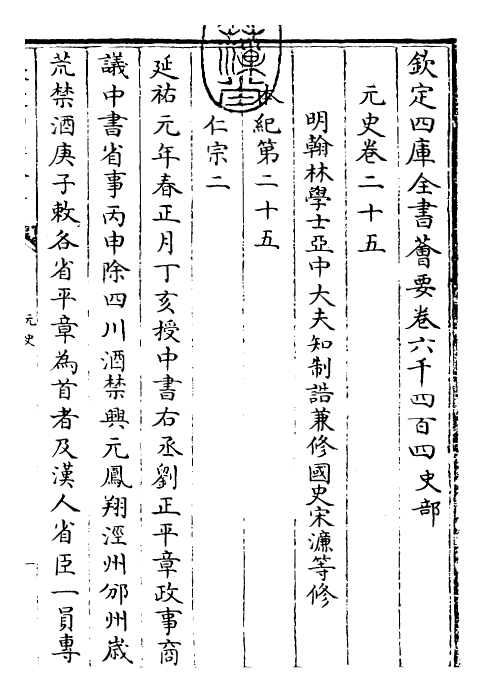 欽定四庫全書薈要卷六千四百四 史部
元史卷二十五
明翰林學士亞中大夫知制誥兼修國史宋濂等修
本紀第二十五
仁宗二
延祐元年春正月丁亥授中書右丞劉正平章政事商
議中書省事丙申除四川酒禁興元鳳翔涇州邠州歲
荒禁酒庚子敕各省平章為首者及漢人省臣一員專
元史
一